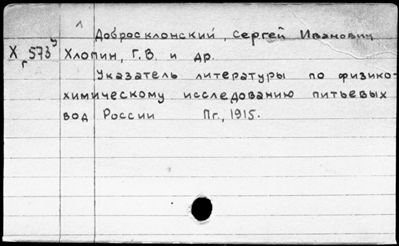 Добросклонский, Сергей Иванович
Х г 573 у Хлопин, Г.В. и др.
Указатель литературы по физико-
химическому исследованию питьевых
вод России Пг., 1915.